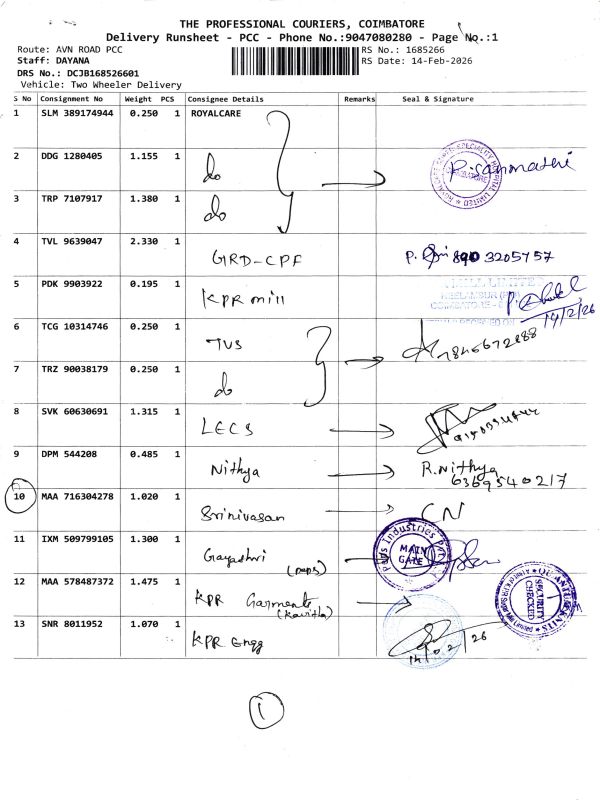 THE PROFESSIONAL COURIERS, COIMBATORE
Delivery Runsheet - PCC - Phone No.:9047080280 - Page No.:1
Route: AVN ROAD PCC
RS No.: 1685266
Staff: DAYANA
RS Date: 14-Feb-2026
DRS No.: DCJB168526601
Vehicle: Two Wheeler Delivery
S No Consignment No Weight PCS Consignee Details Remarks Seal & Signature
1 SLM 389174944 0.250 1 ROYALCARE
2 DDG 1280405 1.155 1 do
P. Sanmathi
3 TRP 7107917 1.380 1 do
4 TVL 9639047 2.330 1 GRD-CPF P. 890 3205757
5 PDK 9903922 0.195 1 KPR mill
14/2/26
6 TCG 10314746 0.250 1 TVS
7 TRZ 90038179 0.250 1 do
8 SVK 60630691 1.315 1 LECS
9 DPM 544208 0.485 1 Nithya R. Nithya
6369540217
10 MAA 716304278 1.020 1 Srinivasan CN
11 IXM 509799105 1.300 1 Gayathri
MAIN GATE
12 MAA 578487372 1.475 1 KPR Garments
(Kavitha)
SECURITY CHECKED
13 SNR 8011952 1.070 1 KPR Engg
14/02/26
1